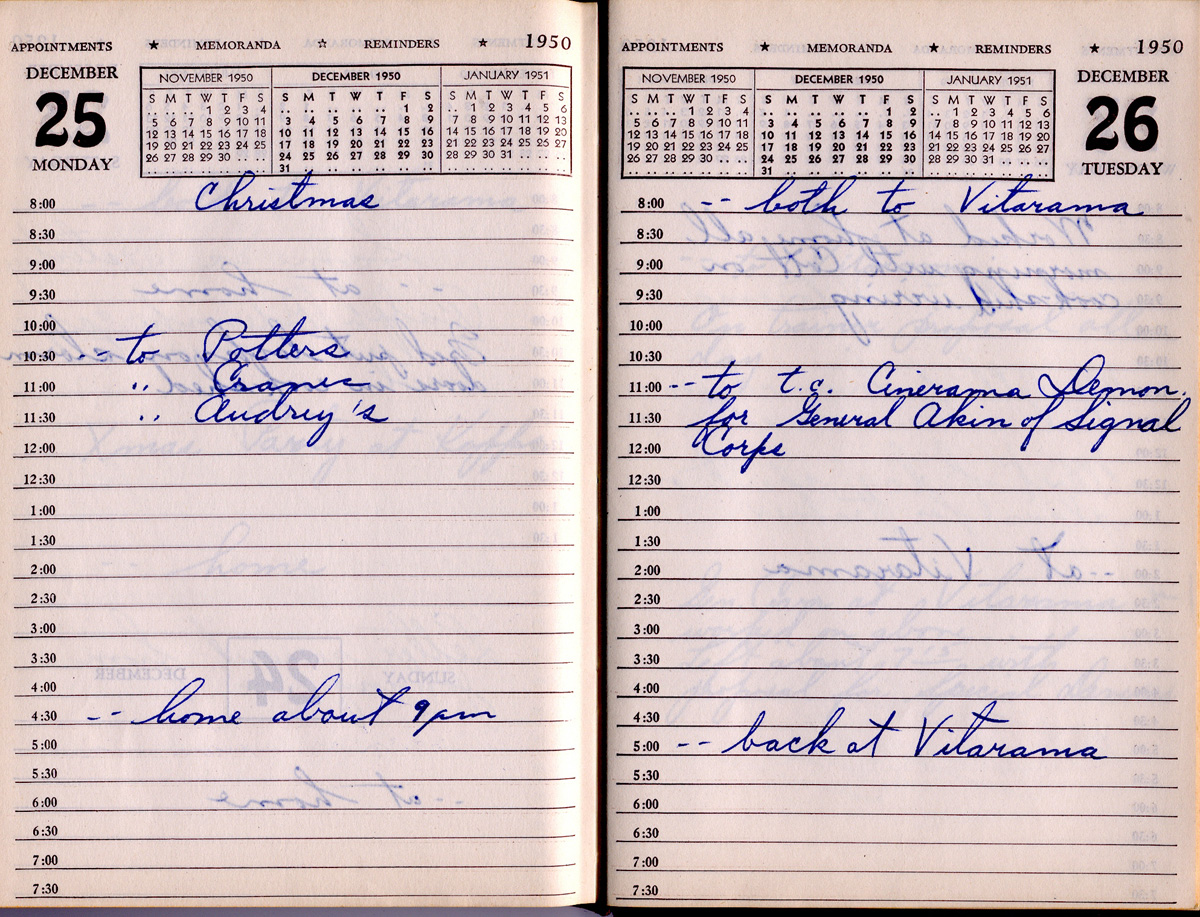 APPOINTMENTS ★ MEMORANDA ☆ REMINDERS ★ 1950
DECEMBER
25
MONDAY
NOVEMBER 1950
S M T W T F S
.. .. .. 1 2 3 4
5 6 7 8 9 10 11
12 13 14 15 16 17 18
19 20 21 22 23 24 25
26 27 28 29 30 .. ..
.. .. .. .. .. .. ..
DECEMBER 1950
S M T W T F S
.. .. .. .. .. 1 2
3 4 5 6 7 8 9
10 11 12 13 14 15 16
17 18 19 20 21 22 23
24 25 26 27 28 29 30
31 .. .. .. .. .. ..
JANUARY 1951
S M T W T F S
.. 1 2 3 4 5 6
7 8 9 10 11 12 13
14 15 16 17 18 19 20
21 22 23 24 25 26 27
28 29 30 31 .. .. ..
.. .. .. .. .. .. ..
8:00 Christmas
8:30
9:00
9:30
10:00
10:30 -- to Potters
11:00 " Cranes
11:30 " Audrey's
12:00
12:30
1:00
1:30
2:00
2:30
3:00
3:30
4:00
4:30 -- home about 9pm
5:00
5:30
6:00
6:30
7:00
7:30
APPOINTMENTS ★ MEMORANDA ★ REMINDERS ★ 1950
NOVEMBER 1950
S M T W T F S
.. .. .. 1 2 3 4
5 6 7 8 9 10 11
12 13 14 15 16 17 18
19 20 21 22 23 24 25
26 27 28 29 30 .. ..
.. .. .. .. .. .. ..
DECEMBER 1950
S M T W T F S
.. .. .. .. .. 1 2
3 4 5 6 7 8 9
10 11 12 13 14 15 16
17 18 19 20 21 22 23
24 25 26 27 28 29 30
31 .. .. .. .. .. ..
JANUARY 1951
S M T W T F S
.. 1 2 3 4 5 6
7 8 9 10 11 12 13
14 15 16 17 18 19 20
21 22 23 24 25 26 27
28 29 30 31 .. .. ..
.. .. .. .. .. .. ..
DECEMBER
26
TUESDAY
8:00 -- both to Vitarama
8:30
9:00
9:30
10:00
10:30
11:00 -- to t.c. Cinerama Demon.
11:30 for General Akin of Signal
12:00 Corps
12:30
1:00
1:30
2:00
2:30
3:00
3:30
4:00
4:30
5:00 -- back at Vitarama
5:30
6:00
6:30
7:00
7:30